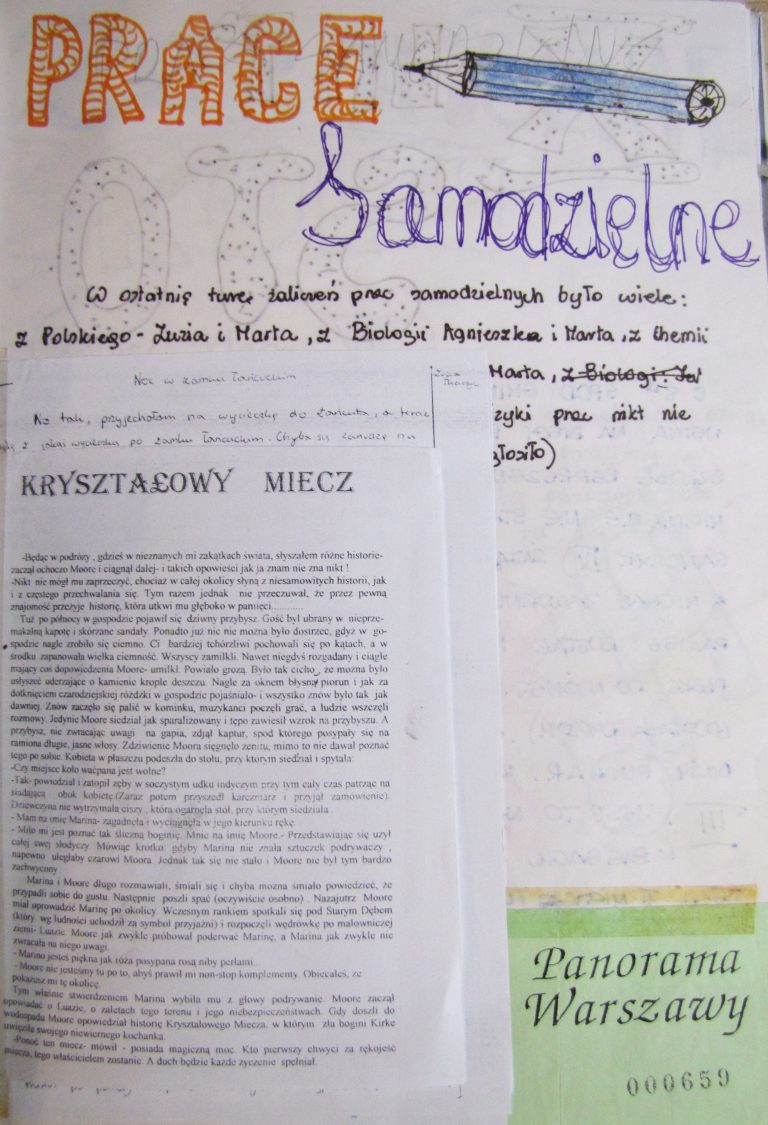 PRACE
Samodzielne
W ostatnię turę zaliczeń prac samodzielnych było wiele:
z Polskiego - Zuzia i Marta, z Biologii Agnieszka i Marta, z Chemii
Marta, z Biologi.
zyki prac nikt nie
głosiło)
Noc w zamku łańcuckim
No tak, przyjechałam na wycieczkę do Łańcuta, a teraz
z jakąś wycieczką po zamku łańcuckim. Chyba się zanudzę na
KRYSZTAŁOWY MIECZ
-Będąc w podróży , gdzieś w nieznanych mi zakątkach świata, słyszałem różne historie-
zaczął ochoczo Moore i ciągnął dalej- i takich opowieści jak ja znam nie zna nikt !
-Nikt nie mógł mu zaprzeczyć, chociaż w całej okolicy słyną z niesamowitych historii, jak
i z częstego przechwalania się. Tym razem jednak nie przeczuwał, że przez pewną
znajomość przeżyje historię, która utkwi mu głęboko w pamięci............
Tuż po północy w gospodzie pojawił się dziwny przybysz. Gość był ubrany w nieprze-
makalną kapotę i skórzane sandały. Ponadto już nic nie można było dostrzec, gdyż w go-
spodzie nagle zrobiło się ciemno. Ci bardziej tchórzliwi pochowali się po kątach, a w
środku zapanowała wielka ciemność. Wszyscy zamilkli. Nawet niegdyś rozgadany i ciągle
mający coś dopowiedzenia Moore- umilkł. Powiało grozą. Było tak cicho, że można było
usłyszeć uderzające o kamienie krople deszczu. Nagle za oknem błysnął piorun i jak za
dotknięciem czarodziejskiej różdżki w gospodzie pojaśniało- i wszystko znów było tak jak
dawniej. Znów zaczęło się palić w kominku, muzykanci poczęli grać, a ludzie wszczęli
rozmowy. Jedynie Moore siedział jak sparaliżowany i tępo zawiesił wzrok na przybyszu. A
przybysz, nie zwracając uwagi na gapia, zdjął kaptur, spod którego posypały się na
ramiona długie, jasne włosy. Zdziwienie Moora sięgnęło zenitu, mimo to nie dawał poznać
tego po sobie. Kobieta w płaszczu podeszła do stołu, przy którym siedział i spytała:
-Czy miejsce koło waćpana jest wolne?
-Tak- powiedział i zatopił zęby w soczystym udku indyczym przy tym cały czas patrząc na
siadającą obok kobietę.(Zaraz potem przyszedł karczmarz i przyjął zamówienie).
Dziewczyna nie wytrzymała ciszy , która ogarnęła stół, przy którym siedziała .
- Mam na imię Marina- zagadnęła i wyciągnęła w jego kierunku rękę.
- Miło mi jest poznać tak śliczną boginię. Mnie na imię Moore.- Przedstawiając się użył
całej swej słodyczy. Mówiąc krótko: gdyby Marina nie znała sztuczek podrywaczy ,
napewno uległaby czarowi Moora. Jednak tak się nie stało i Moore nie był tym bardzo
zachwycony.
Marina i Moore długo rozmawiali, śmiali się i chyba można śmiało powiedzieć, że
przypadli sobie do gustu. Następnie poszli spać (oczywiście osobno) . Nazajutrz Moore
miał oprowadzić Marinę po okolicy. Wczesnym rankiem spotkali się pod Starym Dębem
(który wg ludności uchodził za symbol przyjaźni) i rozpoczęli wędrówkę po malowniczej
ziemi- Luazie. Moore jak zwykle próbował poderwać Marinę, a Marina jak zwykle nie
zwracała na niego uwagi.
- Marino jesteś piękna jak róża posypana rosą niby perłami...
- Moore nie jesteśmy tu po to, abyś prawił mi non-stop komplementy. Obiecałeś, że
pokażesz mi tę okolicę.
Tym właśnie stwierdzeniem Marina wybiła mu z głowy podrywanie. Moore zaczął
opowiadać o Luazie, o zaletach tego terenu i jego niebezpieczeństwach. Gdy doszli do
wodospadu Moore opowiedział historię Kryształowego Miecza, w którym zła bogini Kirke
uwięziła swojego niewiernego kochanka.
-Ponoć ten miecz- mówił - posiada magiczną moc. Kto pierwszy chwyci za rękojeść
miecza, tego właścicielem zostanie. A duch będzie każde życzenie spełniał.
Panorama
Warszawy
000659